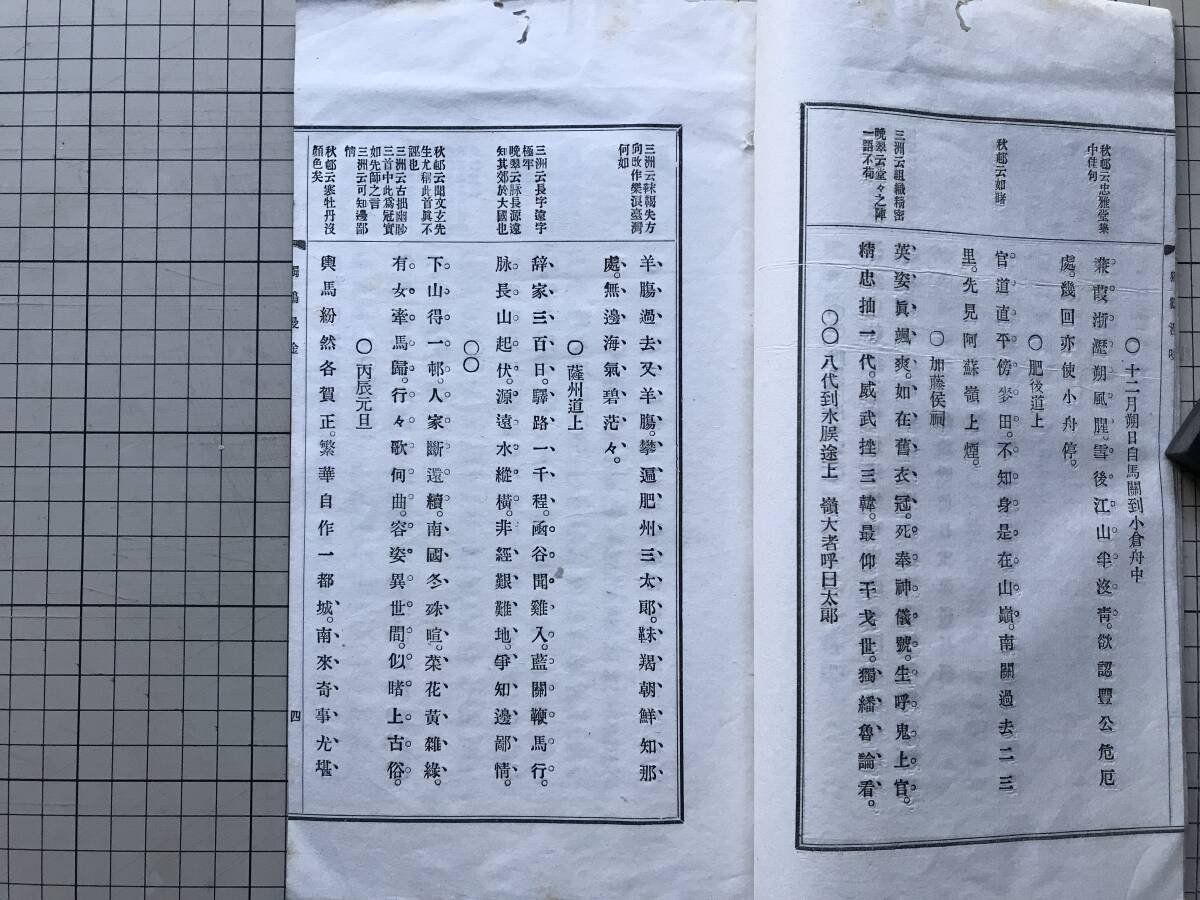 十二月朔日自馬關到小倉舟中
蒹葭淅瀝朔風腥。雪後江山半沒靑。欲認豐公危厄
處。幾回亦使小舟停。
肥後道上
官道直平傍麥田。不知身是在山巓。南關過去二三
里。先見阿蘇嶺上煙。
加藤侯祠
英姿眞颯爽。如在舊衣冠。死奉神儀號。生呼鬼上官。
精忠抽一代。威武挫三韓。最仰干戈世。獨繙魯論看。
八代到水脵途上　嶺大者呼曰太郞
秋邨云忠雅堂集
中佳句
秋邨云如睹
三洲云組織精密
晚翠云堂々之陣
一語不苟
羊腸過去又羊腸。攀遍肥州三太郞。靺羯朝鮮知那
處。無邊海氣碧茫々。
薩州道上
辞家三百日。驛路一千程。函谷聞雞入。藍關鞭馬行。
脉長山起伏。源遠水縱橫。非經艱難地。爭知邊鄙情。
下山得一邨。人家斷還續。南國冬殊暄。菜花黃雜綠。
有女牽馬歸。行々歌何曲。容姿異世間。似睹上古俗。
丙辰元旦
輿馬紛然各賀正。繁華自作一都城。南來奇事尤堪
三洲云靺鞨失方
向改作樂浪臺灣
何如
三洲云長字遠字
極牢
晚翠云脉長源遠
知其郊於大國也
秋邨云聞文玄先
生尤稱此首眞不
誣也
三洲云古拙幽眇
三首中此爲冠實
如先師之言
三洲云可知邊鄙
情
秋邨云寒牡丹沒
顏色矣
四